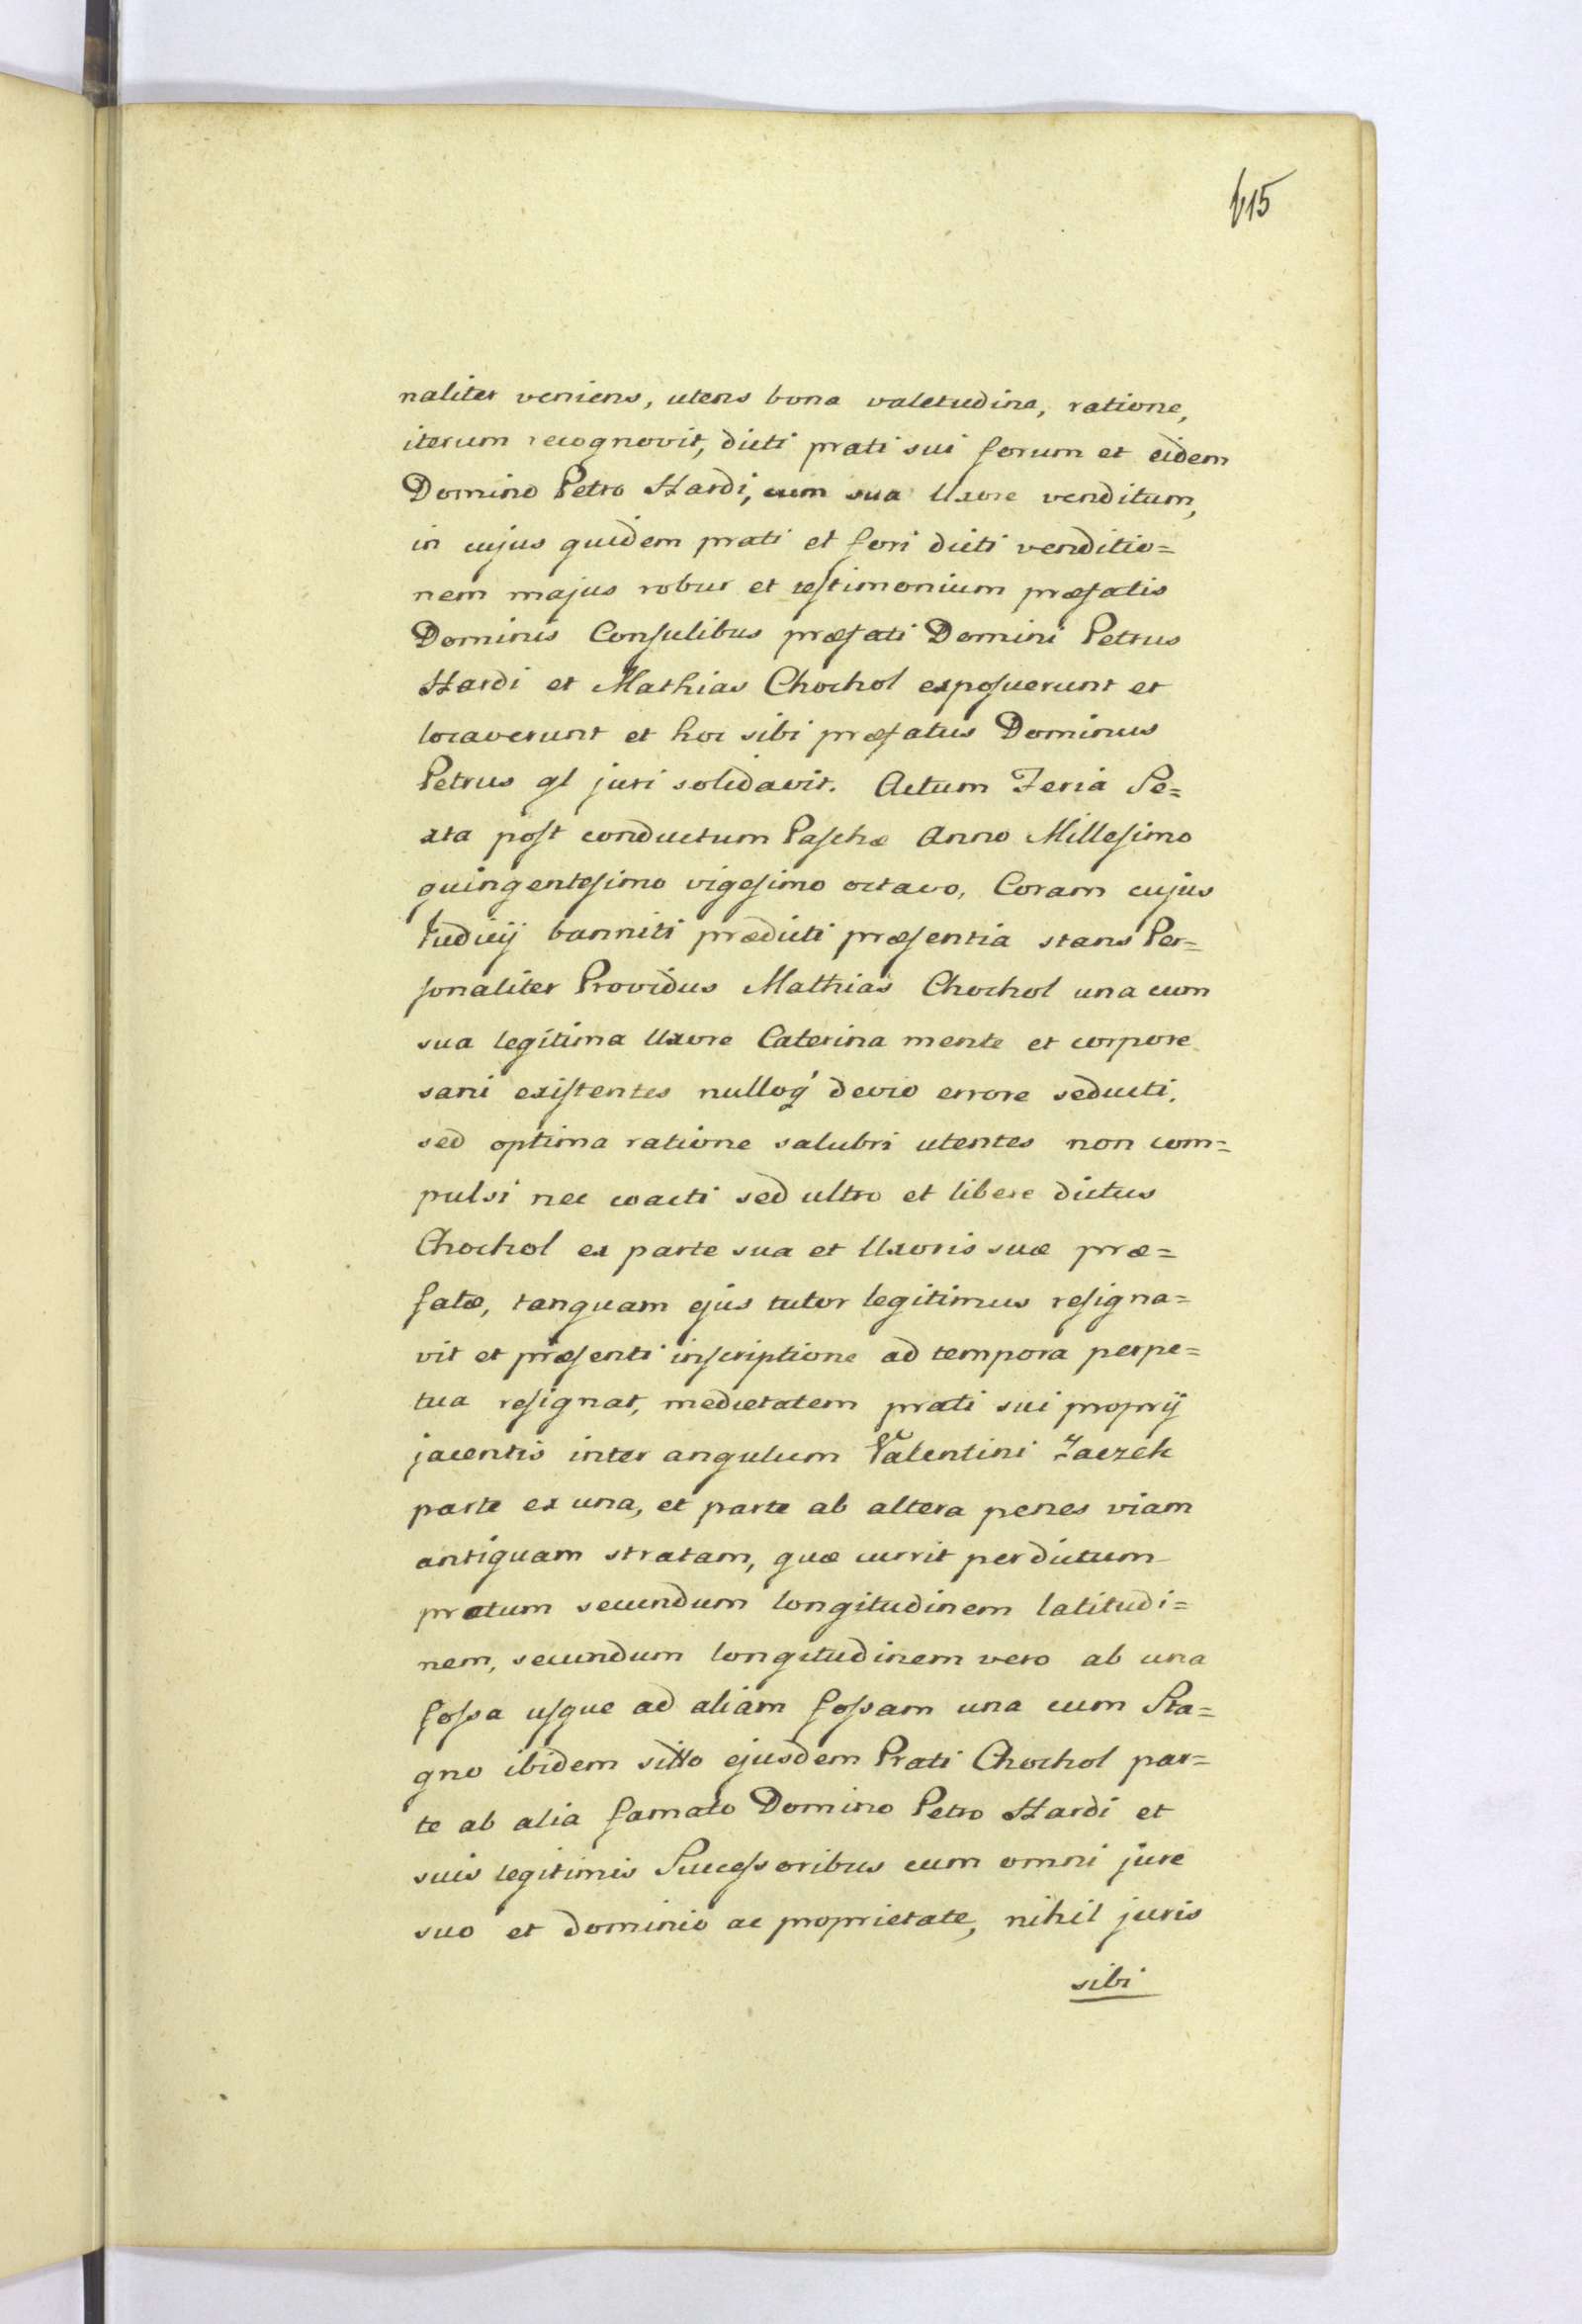 615
naliter veniens, utens bona valetudine, ratione,
iterum recognovit, dicti prati sui forum et eidem
Domino Petro Hardi, cum sua Uxore venditum,
in cujus quidem prati et fori dicti venditio=
nem majus robur et teſtimonium præfatis
Dominis Conſulibus præfati Domini Petrus
Hardi et Mathias Chochol expoſuerunt et
locaverunt et hoc sibi præfatus Dominus
Petrus gl juri solidavit. Actum Feria Se=
xta poſt conductum Paſchæ Anno Milleſimo
quingenteſimo vigeſimo octavo, Coram cujus
Judicij banniti prædicti præſentia stans Per=
ſonaliter Providus Mathias Chochol una cum
sua legitima Uxore Caterina mente et corpore
sani exiſtentes nulloq́ devio errore seducti,
sed optima ratione salubri utentes non com=
pulsi nec coacti sed ultro et libere dictus
Chochol ex parte sua et Uxoris suæ præ=
fatæ, tanquam ejus tutor legitimus reſigna=
vit et præſenti inſcriptione ad tempora perpe=
tua reſignat, medietatem prati sui proprij
jacentis inter angulum Valentini Zaczek
parte ex una, et parte ab altera penes viam
antiquam stratam, quæ currit per dictum
pratum secundum longitudinem latitudi=
nem, secundum longitudinem vero ab una
foſsa uſque ad aliam foſsam una cum Sta=
gno ibidem sitto ejusdem Prati Chochol par=
te ab alia famato Domino Petro Hardi et
suis legitimis Succeſsoribus cum omni jure
suo et dominio ac proprietate, nihil juris
sibi